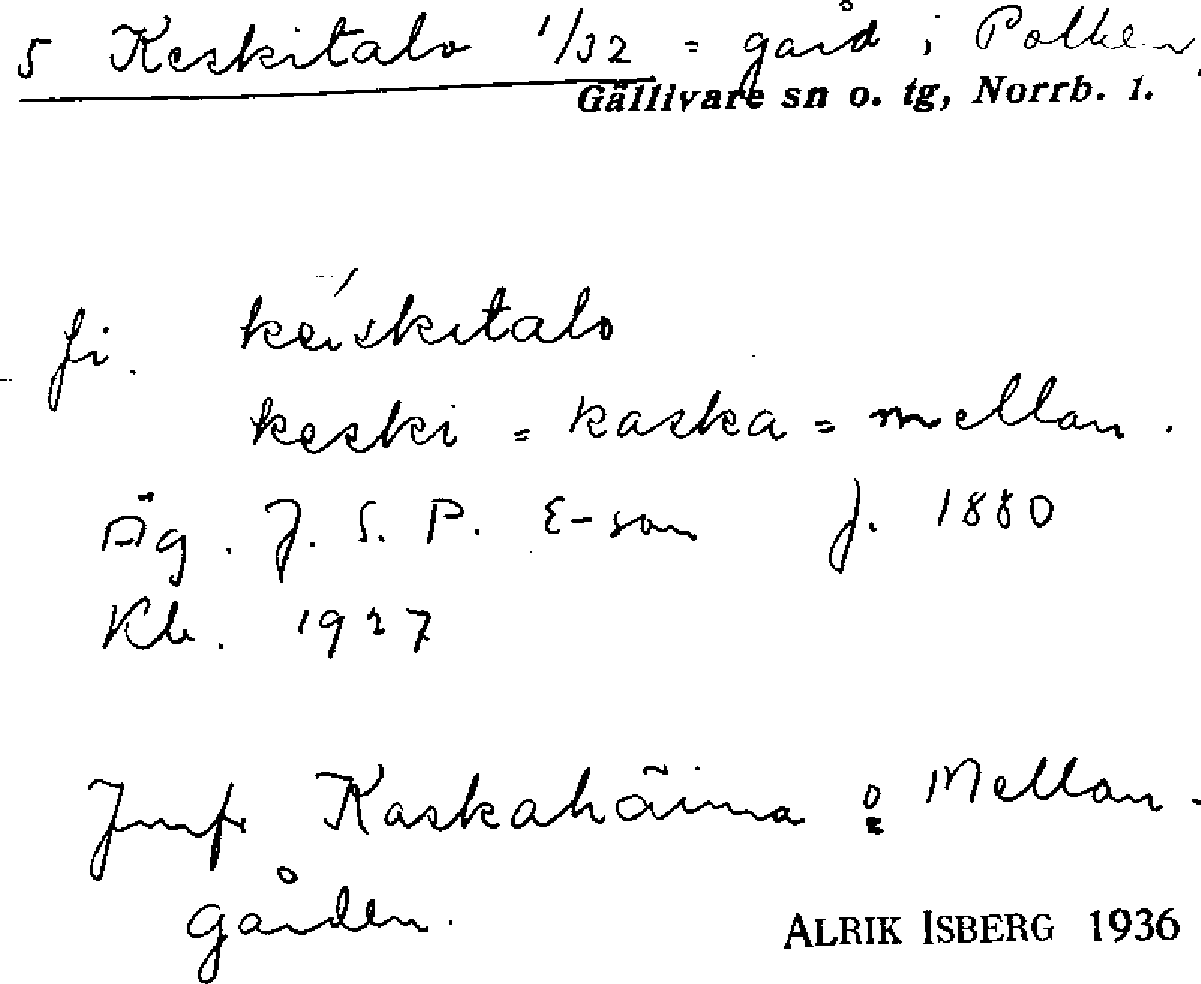 5 Keskitalo 1/32 = gård i Polken
Gällivare sn o. tg, Norrb. l.
fi. kéiskitalo
keski = kaska = mellan.
Äg. J. S. P. E-son f. 1880
Kb. 1927
Jmfr Kaskahäima o Mellan-
gården.
ALRIK ISBERG 1936